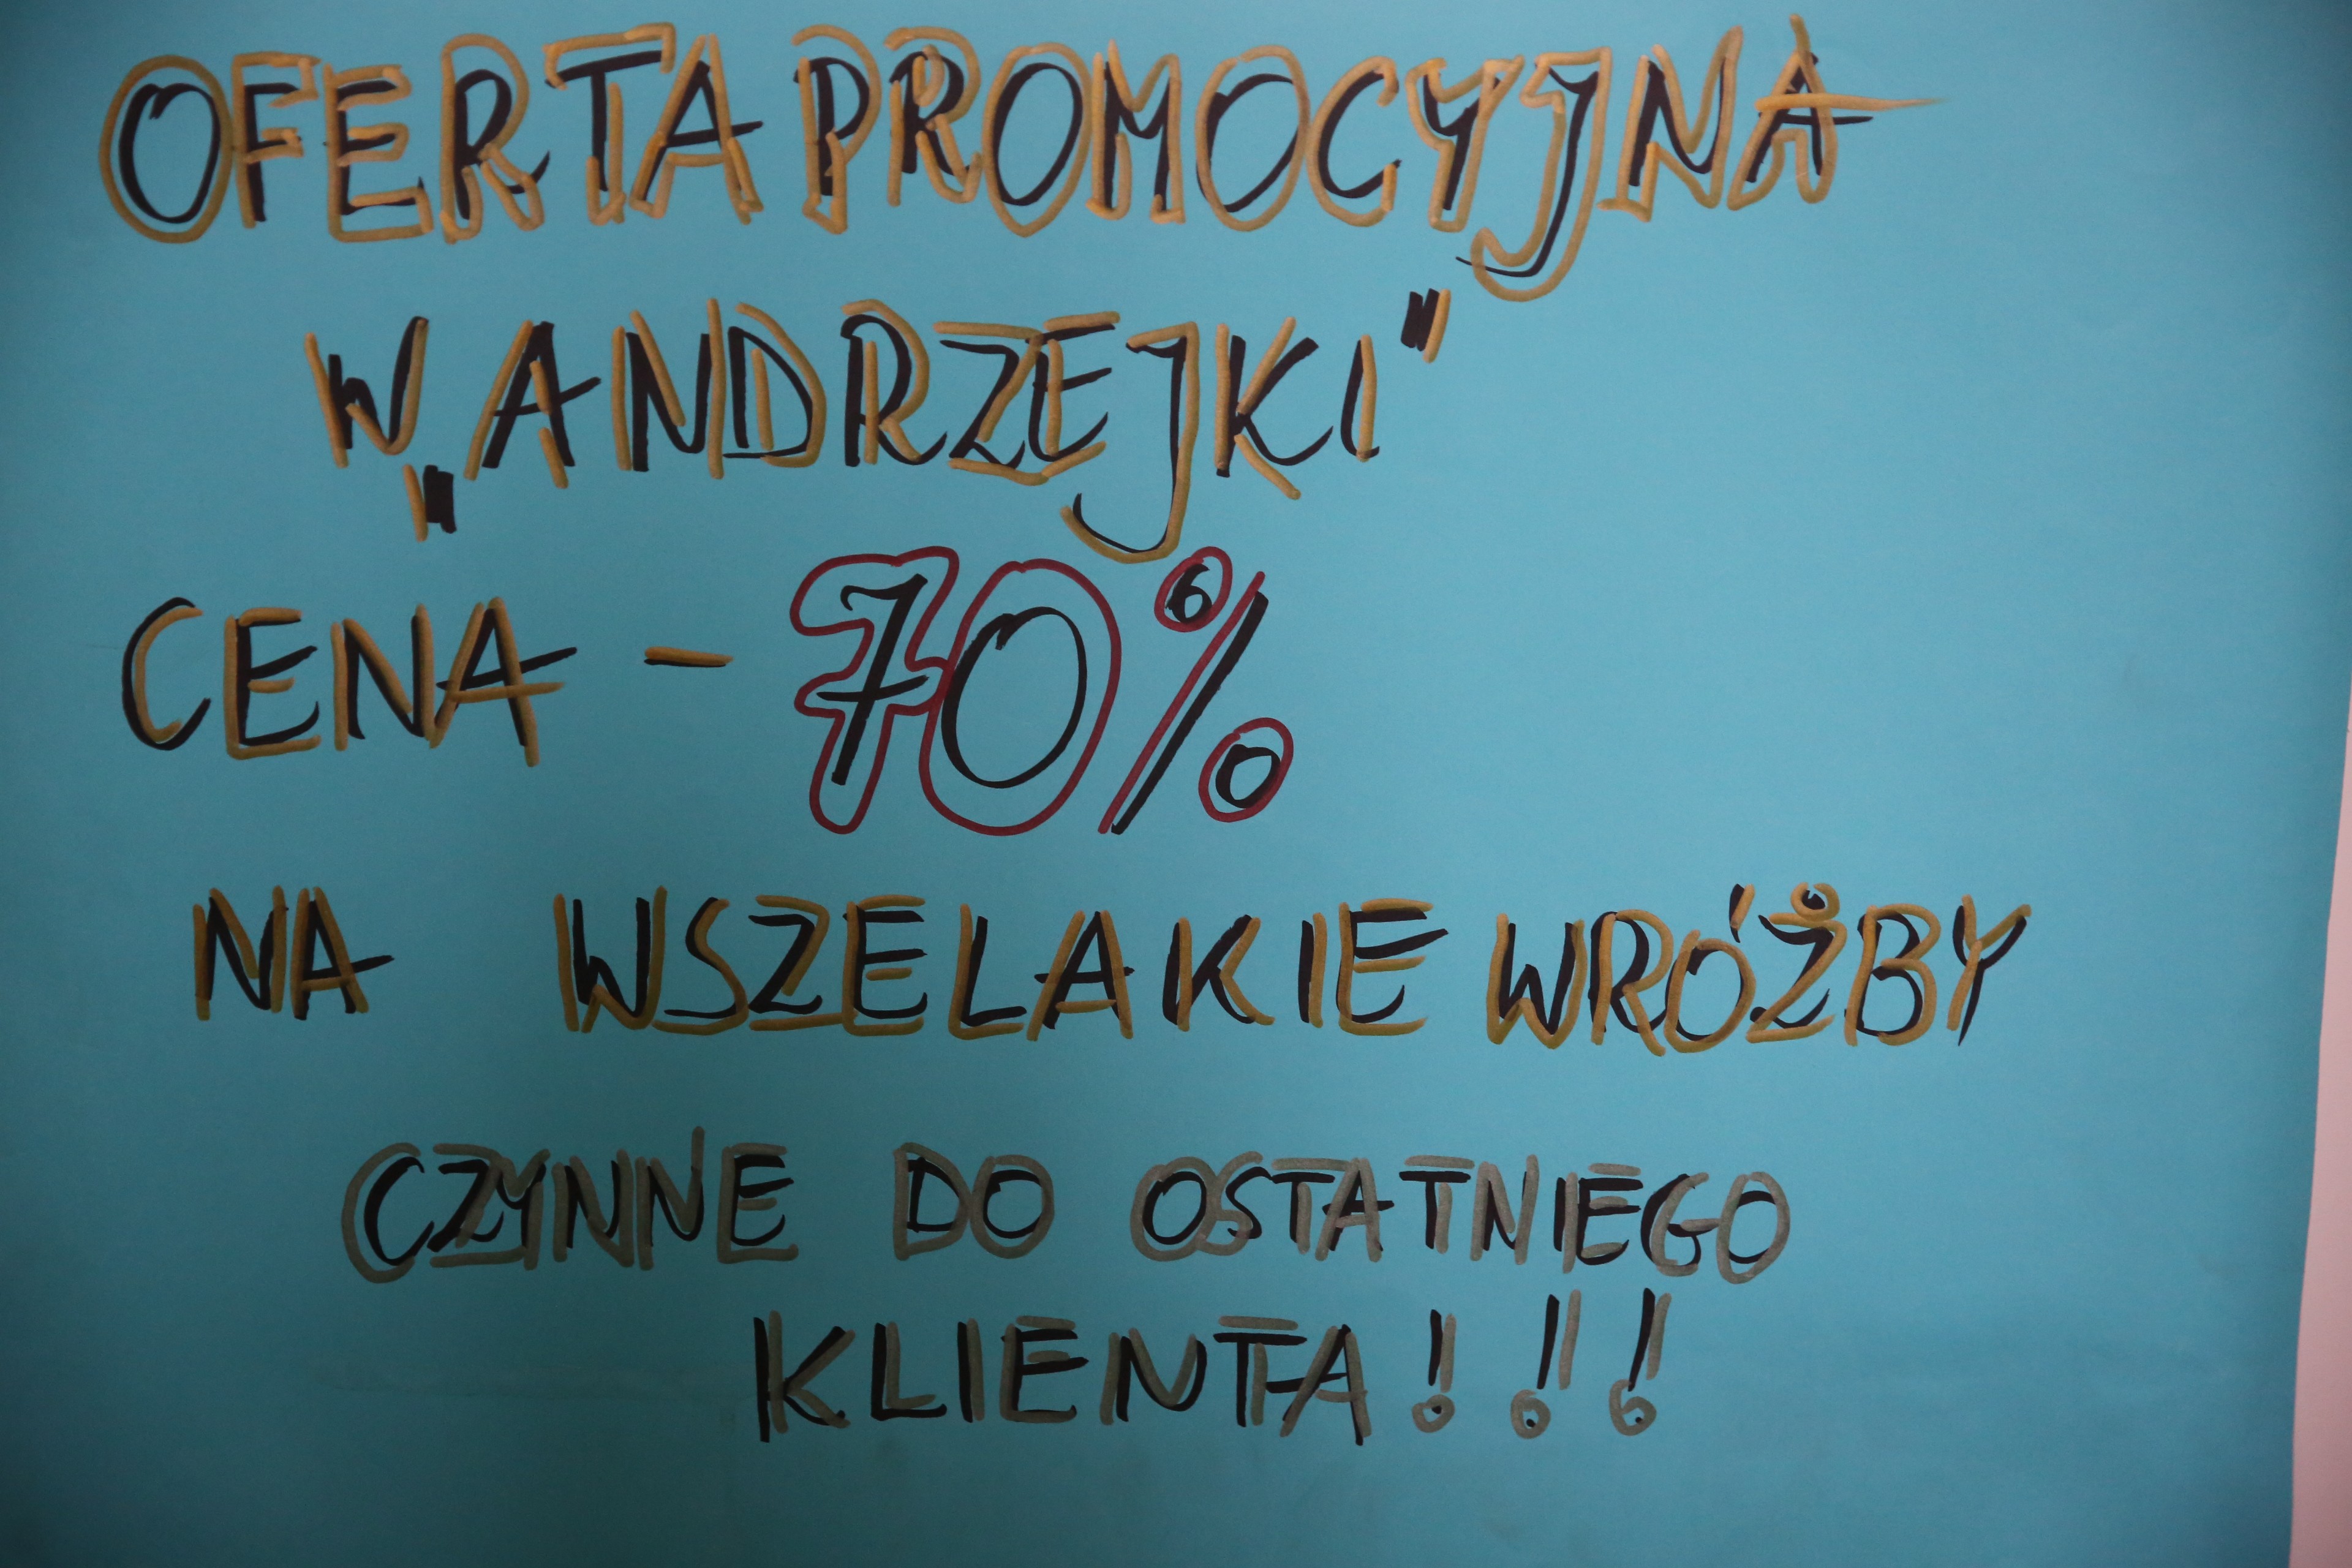 OFERTA PROMOCYJNA
W „ANDRZEJKI"
CENA - 70%
NA WSZELAKIE WRÓŻBY
CZYNNE DO OSTATNIEGO
KLIENTA!!!